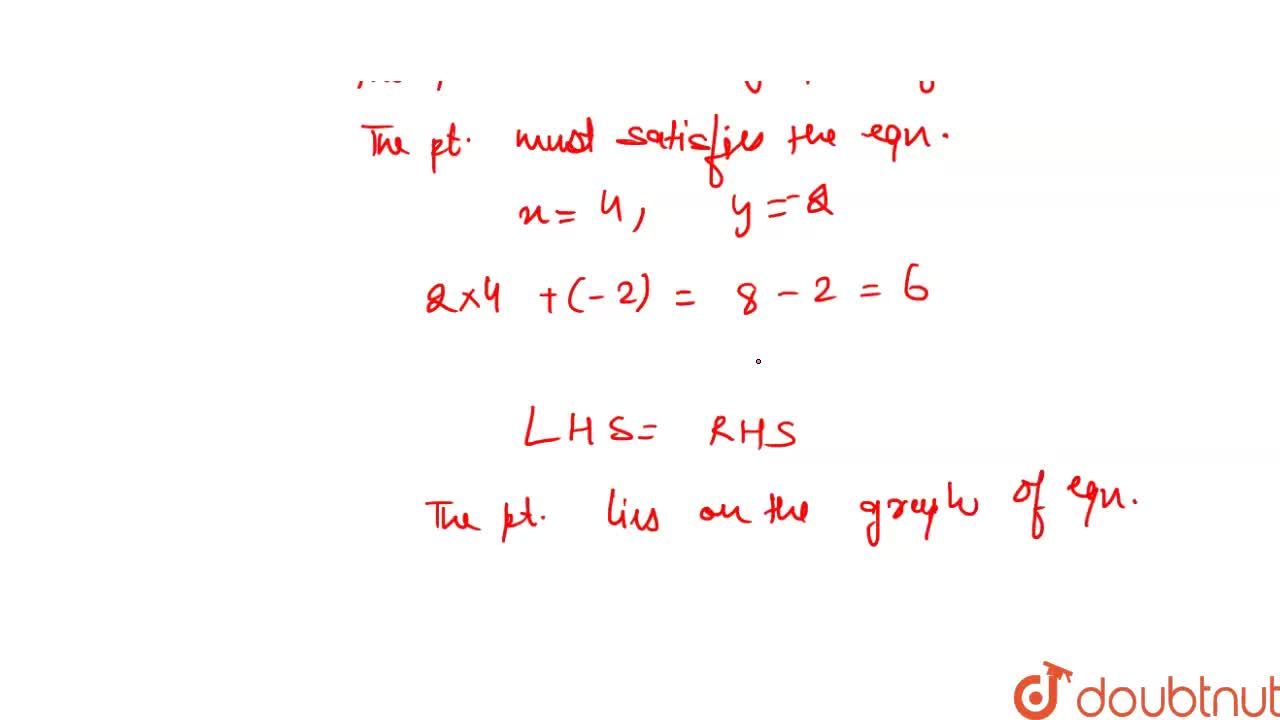 The pt. must satisfies the eqn.
x = 4, y = -2
2×4 + (-2) = 8 - 2 = 6
LHS = RHS
The pt. lies on the graph of eqn.
doubtnut